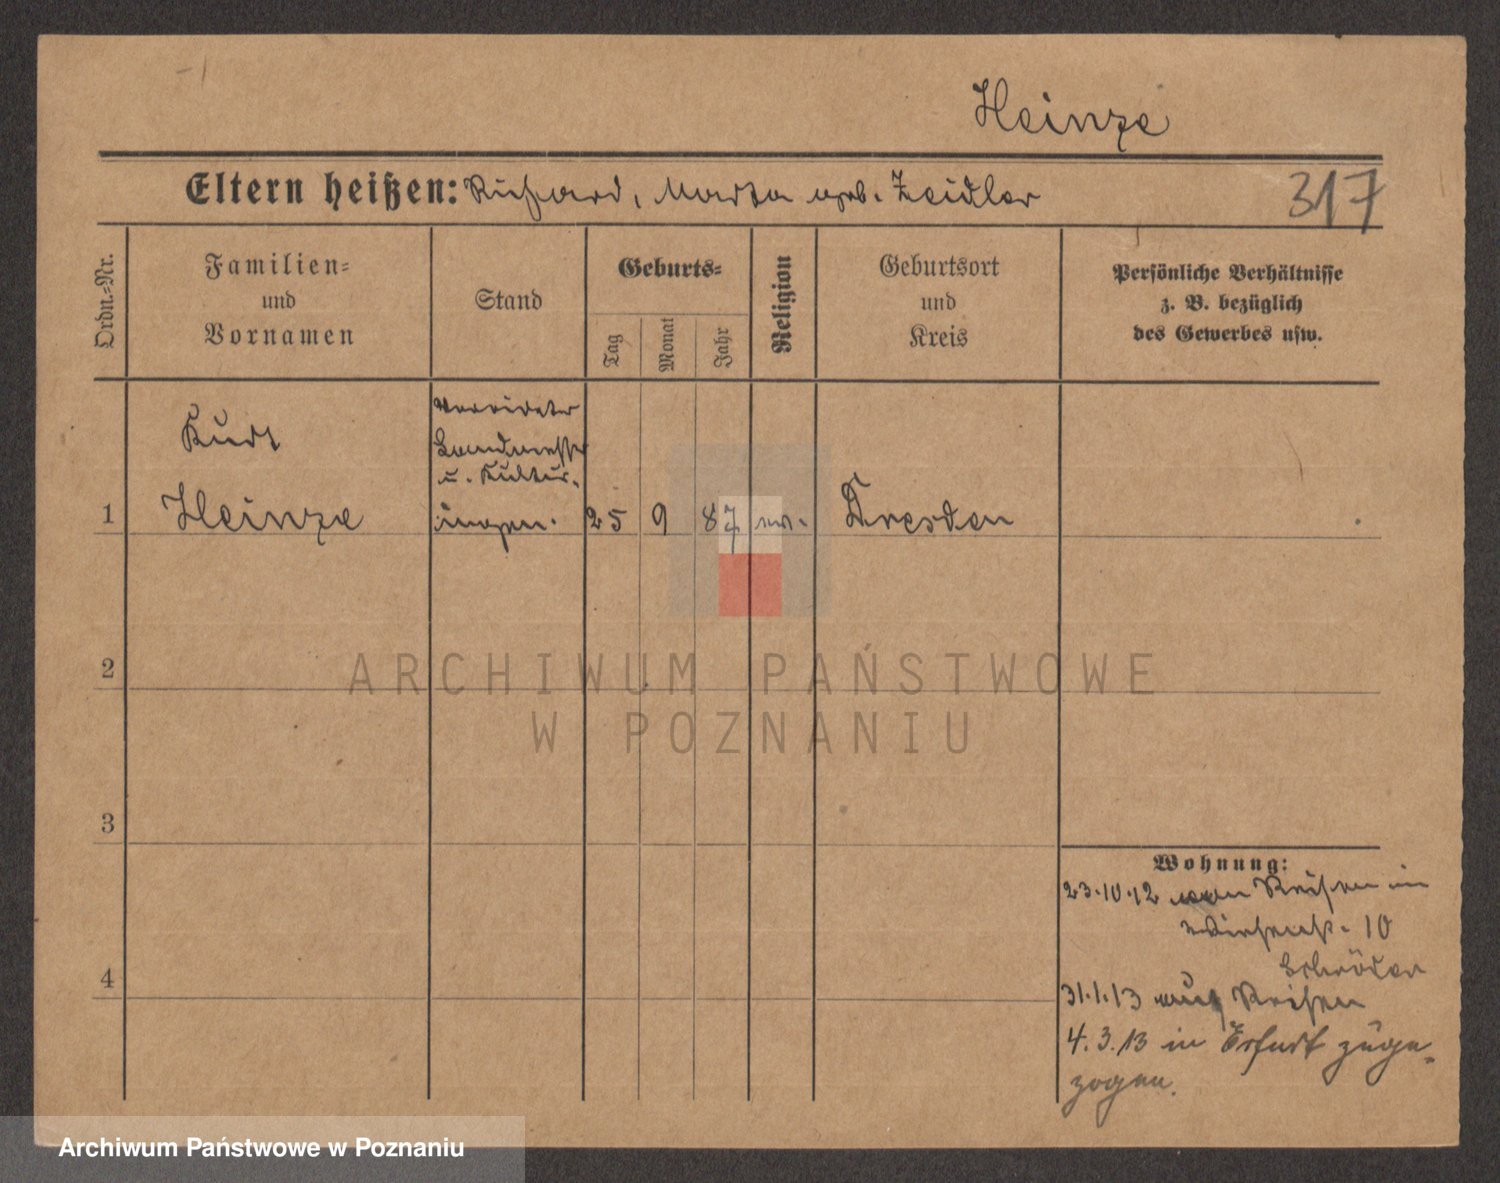 Heinze
Eltern heißen: Richard, Marta geb. Zeidler
317
Ordn.=Nr.
Familien=
und
Vornamen
Stand
Geburts=
Tag
Monat
Jahr
Religion
Geburtsort
und
Kreis
Persönliche Verhältnisse
z. B. bezüglich
des Gewerbes usw.
1
Kurt
Heinze
Vereideter
Landmesser
u. Kultur-
ingen.
25
9
87
ev.
Dresden
2
ARCHIWUM PAŃSTWOWE
W POZNANIU
3
Wohnung:
23.10.12 von Reisen in
10
Schröder
4
31.1.13 auf Reisen
4.3.13 in Erfurt zuge-
zogen.
Archiwum Państwowe w Poznaniu